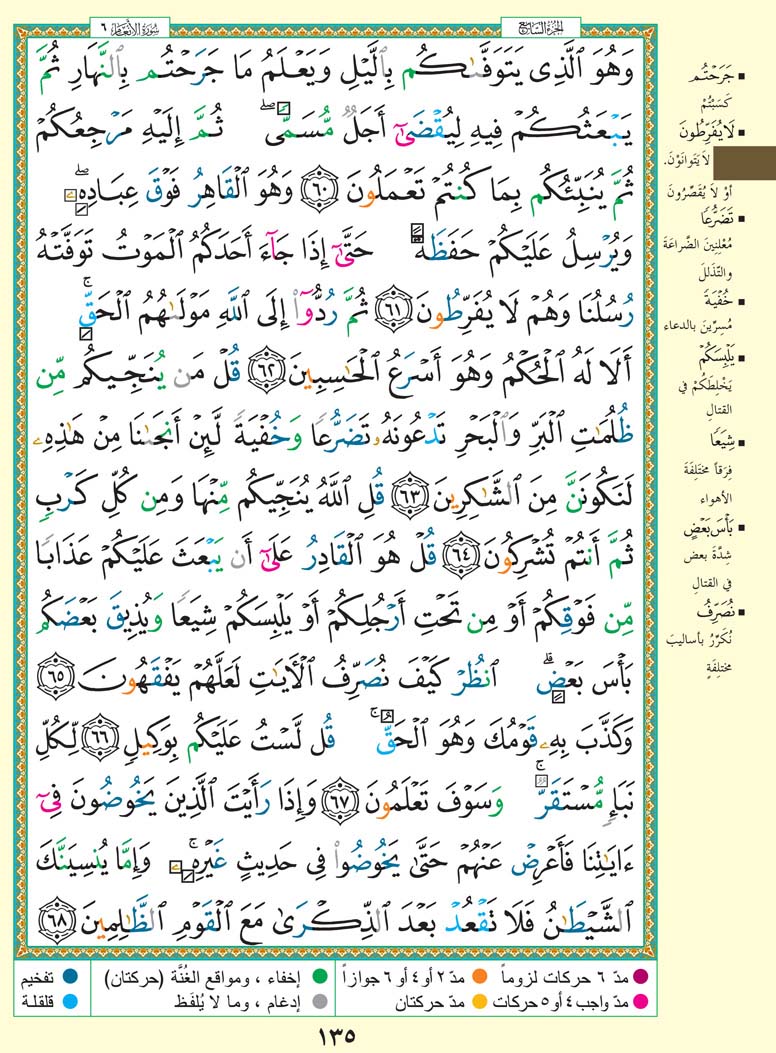 سورة الأنعام ٦
الجزء السابع
وَهُوَ ٱلَّذِى يَتَوَفَّىٰكُم بِٱلَّيْلِ وَيَعْلَمُ مَا جَرَحْتُم بِٱلنَّهَارِ ثُمَّ
يَبْعَثُكُمْ فِيهِ لِيُقْضَىٰٓ أَجَلٌ مُّسَمًّى ۖ ثُمَّ إِلَيْهِ مَرْجِعُكُمْ
ثُمَّ يُنَبِّئُكُم بِمَا كُنتُمْ تَعْمَلُونَ ٦٠ وَهُوَ ٱلْقَاهِرُ فَوْقَ عِبَادِهِۦ ۖ
وَيُرْسِلُ عَلَيْكُمْ حَفَظَةً حَتَّىٰٓ إِذَا جَآءَ أَحَدَكُمُ ٱلْمَوْتُ تَوَفَّتْهُ
رُسُلُنَا وَهُمْ لَا يُفَرِّطُونَ ٦١ ثُمَّ رُدُّوٓا۟ إِلَى ٱللَّهِ مَوْلَىٰهُمُ ٱلْحَقِّ ۚ
أَلَا لَهُ ٱلْحُكْمُ وَهُوَ أَسْرَعُ ٱلْحَـٰسِبِينَ ٦٢ قُلْ مَن يُنَجِّيكُم مِّن
ظُلُمَـٰتِ ٱلْبَرِّ وَٱلْبَحْرِ تَدْعُونَهُۥ تَضَرُّعًا وَخُفْيَةً لَّئِنْ أَنجَىٰنَا مِنْ هَـٰذِهِۦ
لَنَكُونَنَّ مِنَ ٱلشَّـٰكِرِينَ ٦٣ قُلِ ٱللَّهُ يُنَجِّيكُم مِّنْهَا وَمِن كُلِّ كَرْبٍ
ثُمَّ أَنتُمْ تُشْرِكُونَ ٦٤ قُلْ هُوَ ٱلْقَادِرُ عَلَىٰٓ أَن يَبْعَثَ عَلَيْكُمْ عَذَابًا
مِّن فَوْقِكُمْ أَوْ مِن تَحْتِ أَرْجُلِكُمْ أَوْ يَلْبِسَكُمْ شِيَعًا وَيُذِيقَ بَعْضَكُم
بَأْسَ بَعْضٍ ۗ ٱنظُرْ كَيْفَ نُصَرِّفُ ٱلْـَٔايَـٰتِ لَعَلَّهُمْ يَفْقَهُونَ ٦٥
وَكَذَّبَ بِهِۦ قَوْمُكَ وَهُوَ ٱلْحَقُّ ۚ قُل لَّسْتُ عَلَيْكُم بِوَكِيلٍ ٦٦ لِّكُلِّ
نَبَإٍ مُّسْتَقَرٌّ ۚ وَسَوْفَ تَعْلَمُونَ ٦٧ وَإِذَا رَأَيْتَ ٱلَّذِينَ يَخُوضُونَ فِىٓ
ءَايَـٰتِنَا فَأَعْرِضْ عَنْهُمْ حَتَّىٰ يَخُوضُوا۟ فِى حَدِيثٍ غَيْرِهِۦ ۚ وَإِمَّا يُنسِيَنَّكَ
ٱلشَّيْطَـٰنُ فَلَا تَقْعُدْ بَعْدَ ٱلذِّكْرَىٰ مَعَ ٱلْقَوْمِ ٱلظَّـٰلِمِينَ ٦٨
■ جَرَحْتُم
كَسَبْتُمْ
■ لَا يُفَرِّطُونَ
لَا يَتَوَانَوْنَ،
أَوْ لَا يُقَصِّرُونَ
■ تَضَرُّعًا
مُعْلِنِينَ الضَّرَاعَةَ
والتَّذَلُّلَ
■ خُفْيَةً
مُسِرِّينَ بالدعاء
■ يَلْبِسَكُمْ
يَخْلِطَكُمْ في
القتالِ
■ شِيَعًا
فِرَقاً مختَلِفَةَ
الأهواء
■ بَأْسَ بَعْضٍ
شِدَّةَ بعض
في القتالِ
■ نُصَرِّفُ
نُكَرِّرُ بأساليبَ
مختلِفَةٍ
مدّ ٦ حركات لزوماً
مدّ ٢ أو ٤ أو ٦ جوازاً
إخفاء ، ومواقع الغُنَّة (حركتان)
تفخيم
مدّ واجب ٤ أو ٥ حركات
مدّ حركتان
إدغام ، وما لا يُلفَظ
قلقلة
١٣٥